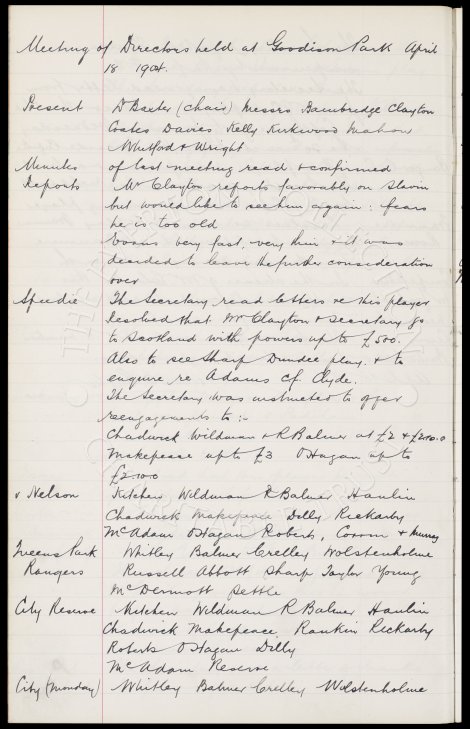 Meeting of Directors held at Goodison Park April
18 1904.
Present Dr Baxter (chair) Messrs Bainbridge Clayton
Coates Davies Kelly Kirkwood Mahon
Whitford & Wright
Minutes of last meeting read & confirmed
Reports Mr Clayton reports favorably on Slavin
but would like to see him again: fears
he is too old
very fast, very thin & it was
decided to leave the further consideration
over
Speedie The Secretary read letters re this player
Resolved that Mr Clayton & Secretary go
to Scotland with powers up to £500.
Also to see Sharp Dundee play. & to
enquire re Adams cf. Clyde.
The Secretary was instructed to offer
reengagements to :-
Chadwick Wildman & R Balmer at £2 & £2.10.0
Makepeace up to £3 O'Hagan up to
£2.10.0
v Nelson Kitchen Wildman R Balmer Hamlin
Chadwick Makepeace Dilly Rickarby
McAdam O'Hagan Roberts, & Murray
Queens Park Whitley Balmer Crelley Wolstenholme
Rangers Russell Abbott Sharp Taylor Young
McDermott Settle
City Reserve Kitchen Wildman R Balmer Hamlin
Chadwick Makepeace, Rankin Rickarby
Roberts O'Hagan Dilly
McAdam Reserve
City (Monday) Whitley Balmer Crelley Wolstenholme